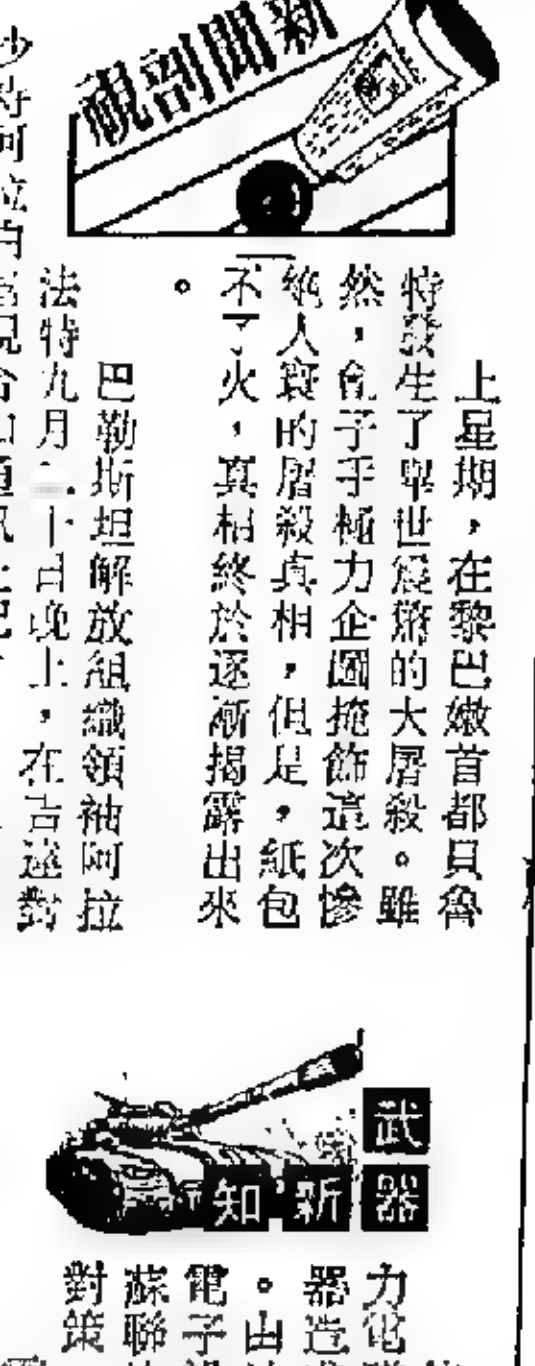 新聞剖視
上星期，在黎巴嫩首都貝魯
特發生了舉世震驚的大屠殺。雖
然，劊子手極力企圖掩飾這次慘
絕人寰的屠殺真相，但是，紙包
不了火，真相終於逐漸揭露出來
。
巴勒斯坦解放組織領袖阿拉
法特九月二十日晚上，在吉達對
武器新知
力電
器造
。由
電子
蘇聯
對策